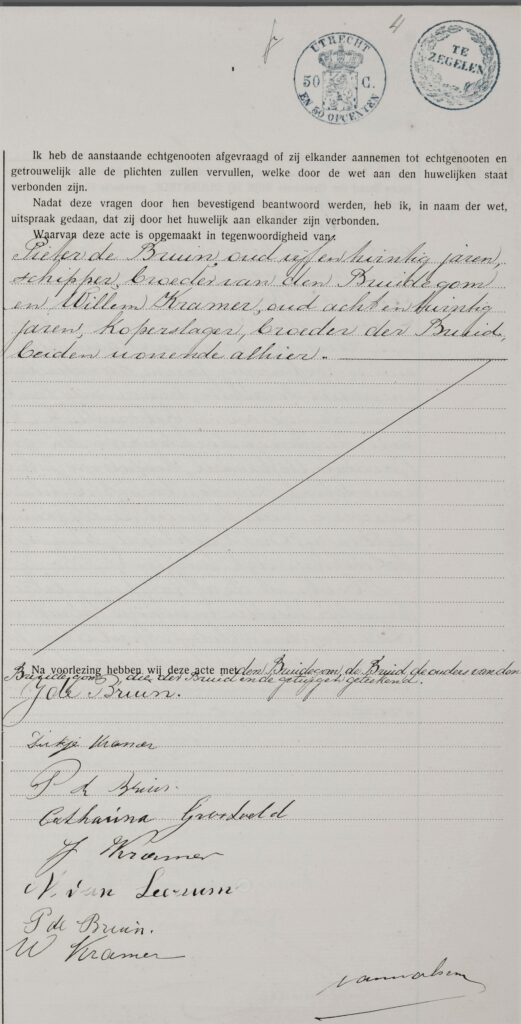 4
UTRECHT
50 C.
EN 50 OPCENTEN
TE
ZEGELEN
Ik heb de aanstaande echtgenooten afgevraagd of zij elkander aannemen tot echtgenooten en
getrouwelijk alle de plichten zullen vervullen, welke door de wet aan den huwelijken staat
verbonden zijn.
Nadat deze vragen door hen bevestigend beantwoord werden, heb ik, in naam der wet,
uitspraak gedaan, dat zij door het huwelijk aan elkander zijn verbonden.
Waarvan deze acte is opgemaakt in tegenwoordigheid van:
Pieter de Bruin, oud vijf en twintig jaren,
schipper, broeder van den Bruidegom
en Willem Kramer, oud acht en twintig
jaren, koperslager, broeder der Bruid,
beiden wonende alhier.
Na voorlezing hebben wij deze acte met den Bruidegom, de Bruid, de ouders van den
Bruidegom, die der Bruid en de getuigen geteekend.
J de Bruin.
Dirkje Kramer
P de Bruin.
Catharina Grootveld
J Kramer
N. van Leersum
P de Bruin.
W Kramer